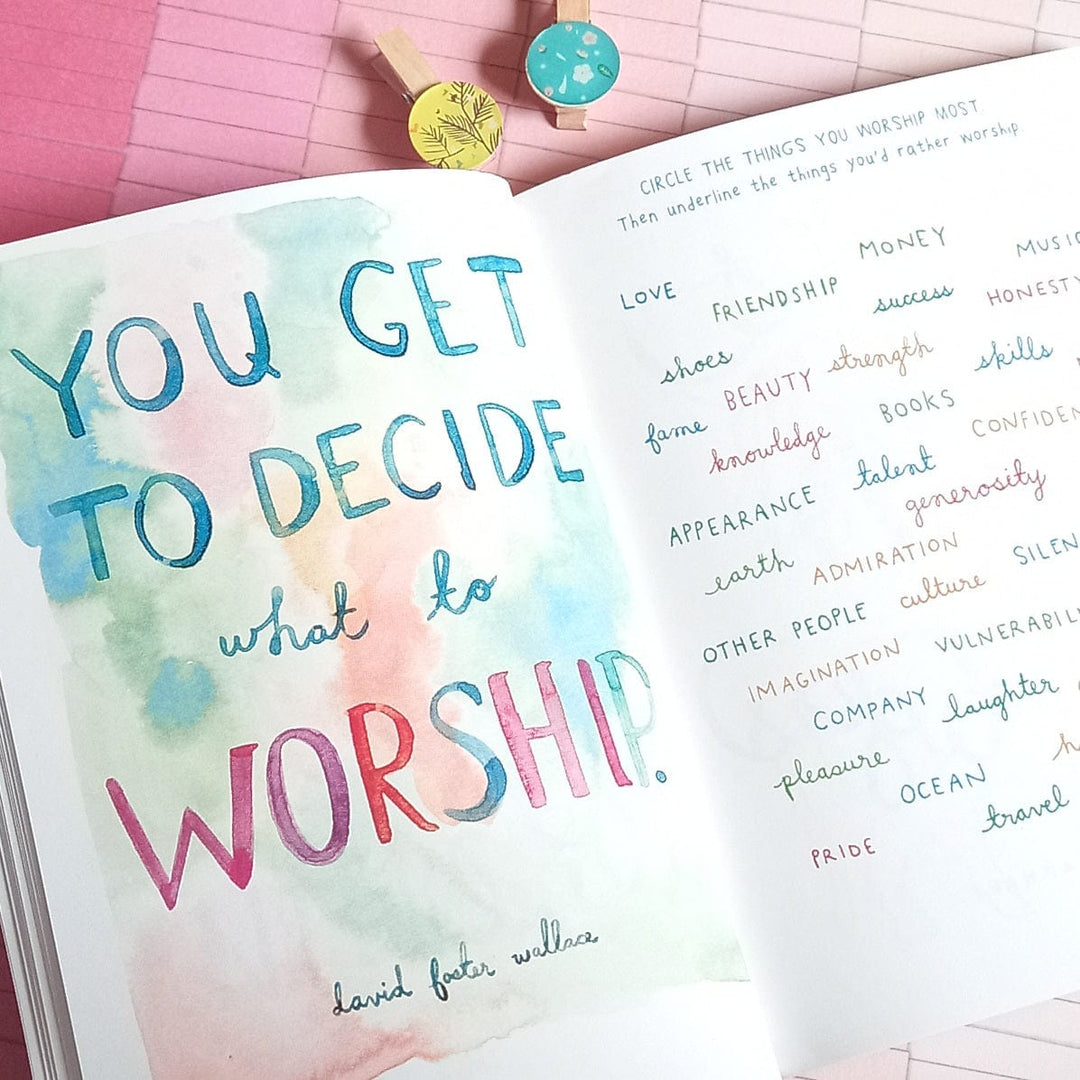 YOU GET
TO DECIDE
what to
WORSHIP.
david foster wallace
CIRCLE THE THINGS YOU WORSHIP MOST
Then underline the things you'd rather worship
LOVE FRIENDSHIP MONEY
success HONESTY
shoes BEAUTY strength skills
fame knowledge BOOKS
APPEARANCE talent
generosity
earth ADMIRATION
OTHER PEOPLE culture
IMAGINATION
COMPANY laughter
pleasure OCEAN
travel
PRIDE